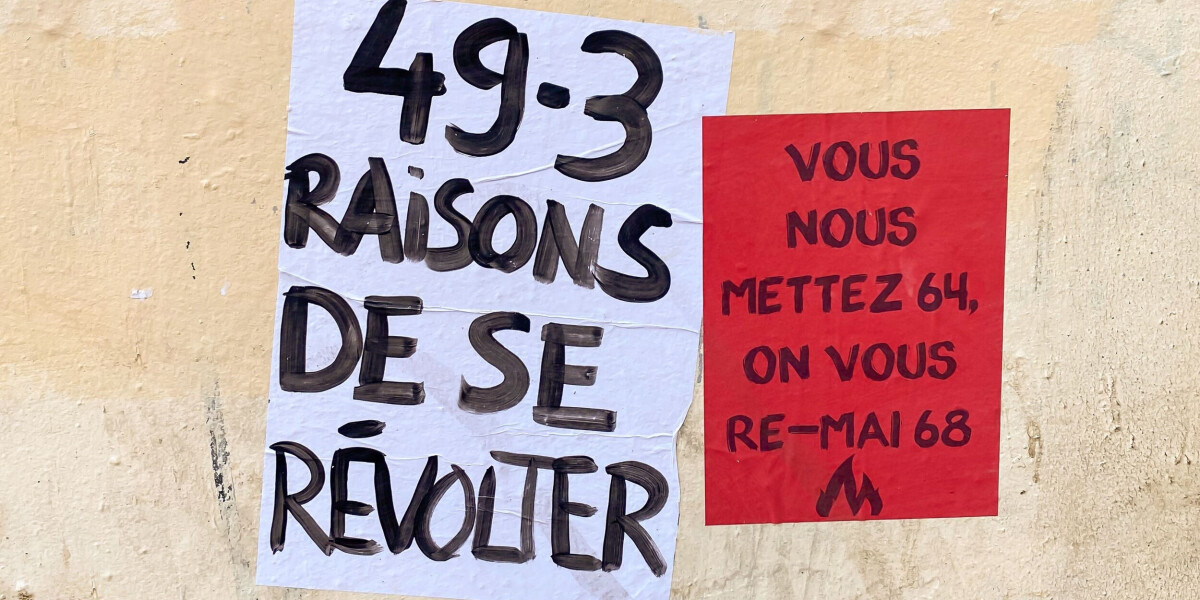 49-3
RAiSONS
DE SE
RÉVOLTER
VOUS
NOUS
METTEZ 64,
ON VOUS
RE-MAI 68